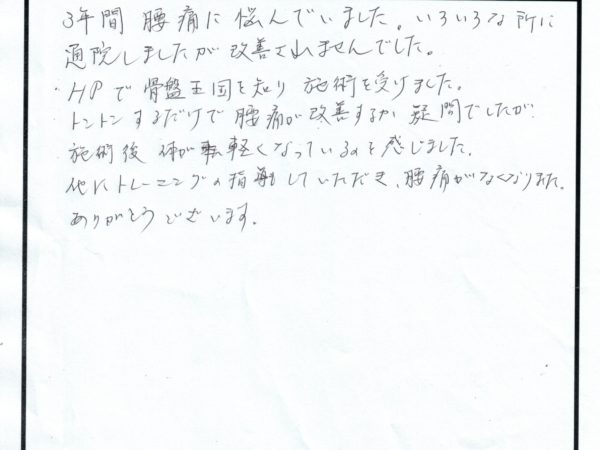 3年間 腰痛に悩んでいました。いろいろな所に
通院しましたが改善されませんでした。
HPで骨盤王国を知り 施術を受けました。
トントンするだけで腰痛が改善するか 疑問でしたが
施術後 体が軽くなっているのを感じました。
他にトレーニングの指導していただき、腰痛がなくなりました。
ありがとうございます。